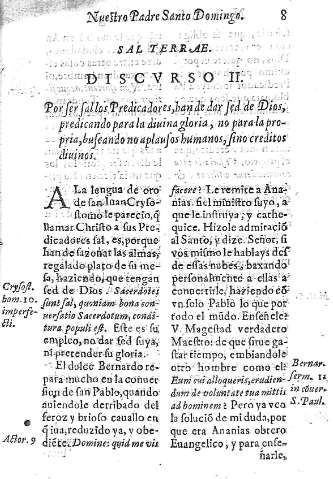 Nuestro Padre Santo Domingo. 8
SAL TERRAE.
DISCVRSO II.
Por ser sal los Predicadores, han de dar sed de Dios,
predicando para la diuina gloria, no para la pro-
pria, buscando no aplausos humanos, sino creditos
diuinos.
A La lengua de oro
de san Iuan Crysos-
tomo le parecio, q̃
llamar Christo a sus Pre-
dicadores sal, es, porque
han de sazonar las almas,
regalado plato de su me-
sa, haziendo, que tengan
sed de Dios. Sacerdotes
sunt sal, quoniam bona con-
uersatio Sacerdotum, condi-
tura populi est. Este es su
empleo, no dar sed suya,
ni pretender su gloria.
El dolce Bernardo re-
para mucho en la conuer
sion de san Pablo, quando
auiendole derribado del
feroz y brioso cauallo en
q̃ iua, reduzido ya, y obe-
diẽte. Domine: quid me vis
Crysost.
hom. 10.
imperfe-
cti.
Actor. 9
facere? Le remite a Ana-
nias fiel ministro suyo, a
que le instruya, y cathe-
quice. Hizole admiraciõ
al Santo, y dize. Señor, si
vos mismo le hablays des
de essas nubes, baxando
personalmente a ellas a
conuertirle, haziendo cõ
vn solo Pablo lo que por
todo el mũdo. Enseñele
V. Magestad verdadero
Maestro: de que sirue gas-
tar tiempo, embiandole
otro hombre como el
Eum cui alloqueris, erudien-
dum de voluntate tua mittis
ad hominem? Pero ya veo
la solucion de mi duda, por
que era Ananias obrero
Euangelico, y para ense-
ñarle,
Bernar.
serm. 1.
in cõuer.
S. Paul.